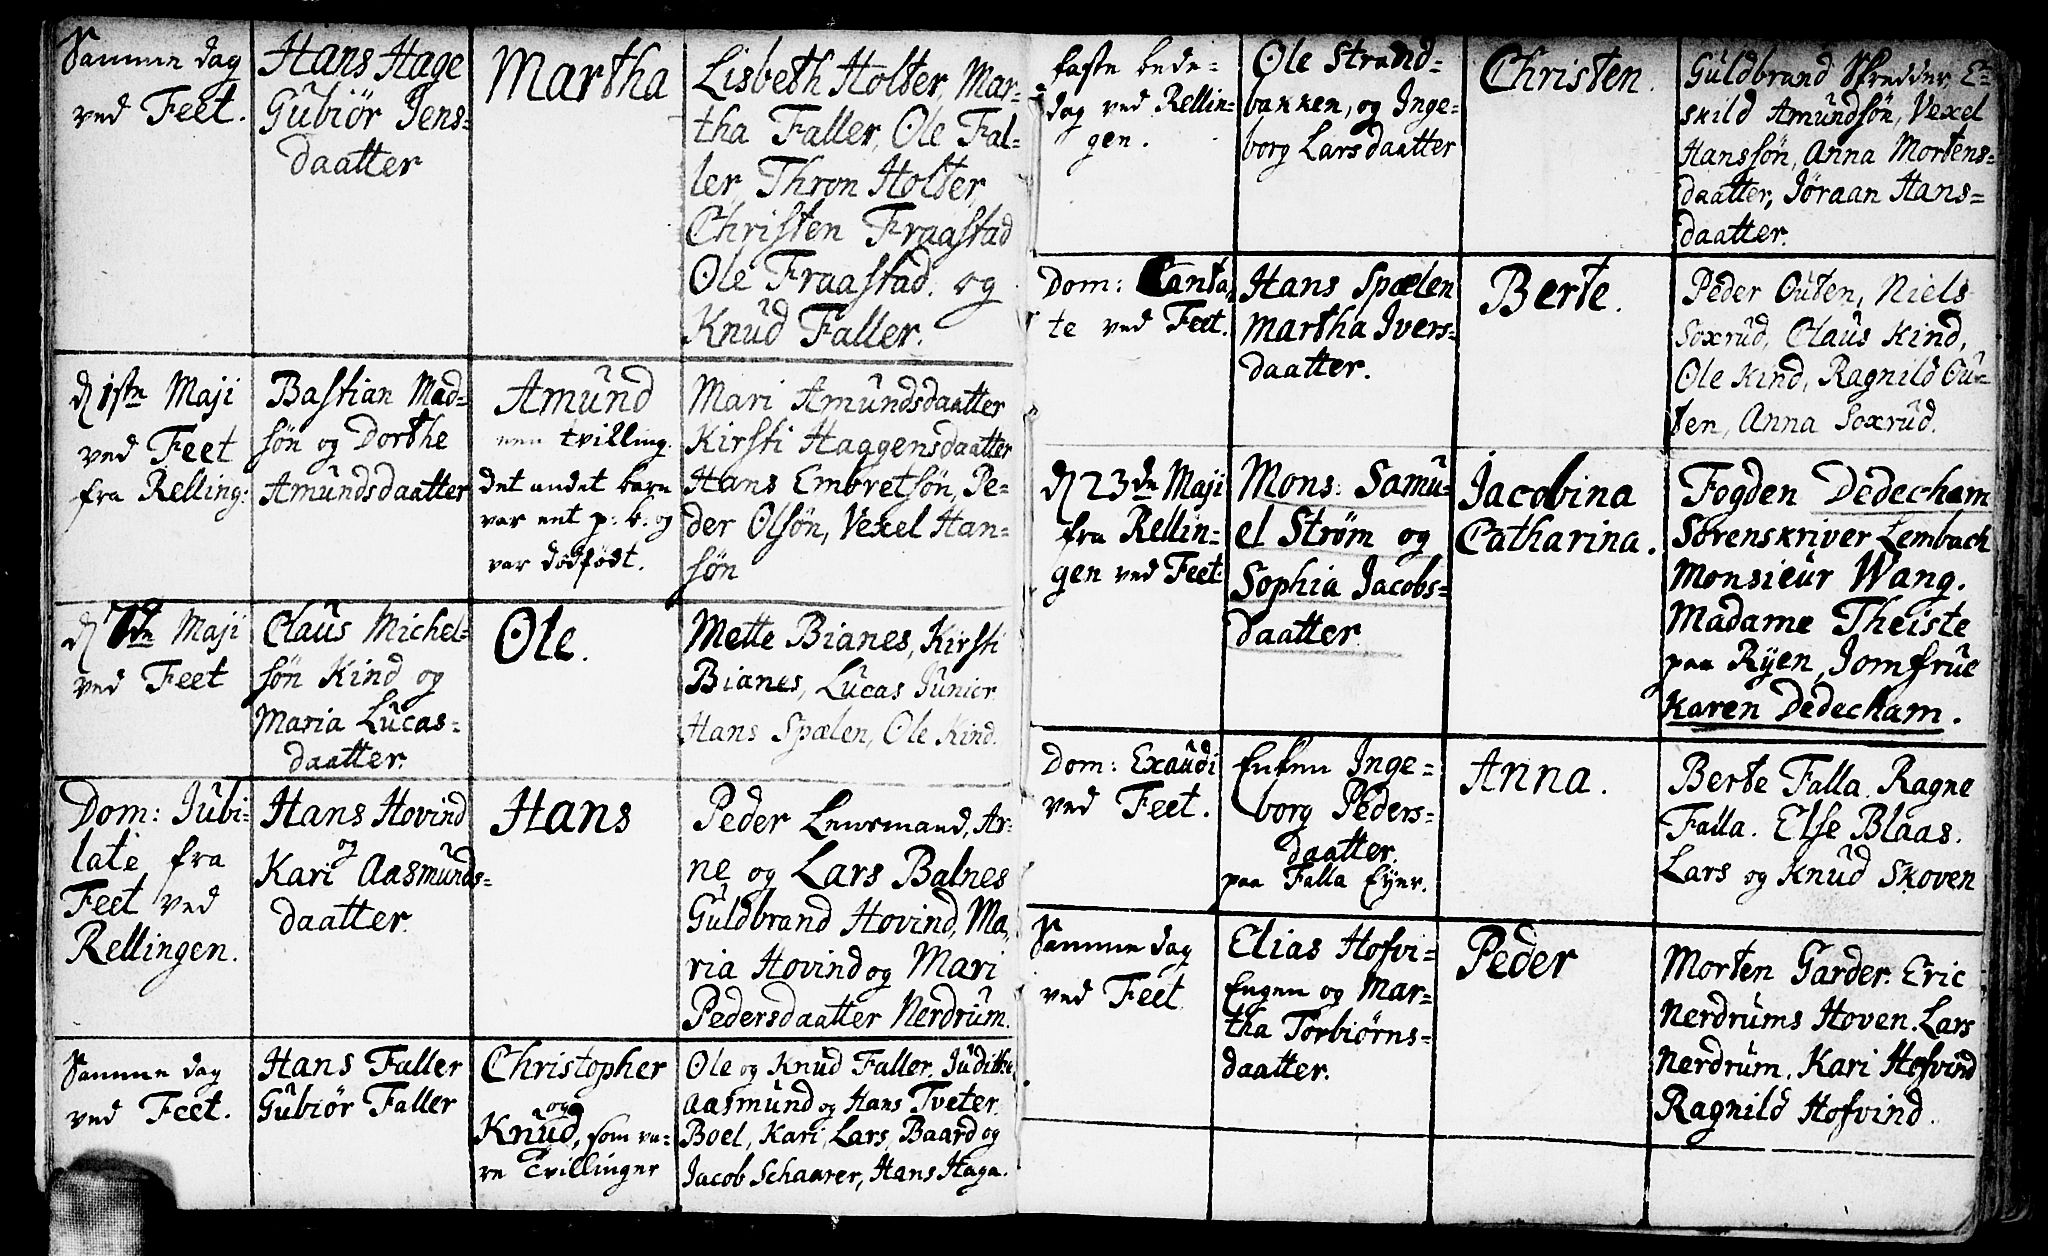 Samme dag
ved Feet.
Hans Hage
Gubiör Jens-
daatter
Martha
Lisbeth Holter, Mar-
tha Faller, Ole Fal-
ler, Thron Holter,
Christen Fraastad
Ole Fraastad. og
Knud Faller.
d 1ste Maji
ved Feet
fra Relling:
Bastian Mad-
søn og Dorthe
Amundsdaatter
Amund
een tvilling.
det andet barn
var ent p: b: og
var dødfødt.
Mari Amundsdaatter
Kirsti Haggensdaatter
Hans Embretsøn, Pe-
der Olsøn, Vexel Han-
søn
d 7de Maji
ved Feet
Claus Michel-
søn Kind og
Maria Lucas-
daatter.
Ole.
Mette Bianes, Kirsti
Bianes, Lucas Junior
Hans Spælen, Ole Kind.
Dom: Jubi-
late fra
Feet ved
Rellingen.
Hans Hovind
og
Kari Aasmunds-
daatter.
Hans
Peder Lensmand, Ar-
ne og Lars Balnes
Guldbrand Hovind, Ma-
ria Hovind og Mari
Pedersdaatter Nerdrum.
Samme dag
ved Feet.
Hans Faller
Gubiör Faller
Christopher
og
Knud, som va-
re Tvillinger
Ole og Knud Faller. Judithe,
Aasmund og Hans Tveter.
Boel, Kari, Lars, Baard og
Jacob Schaarer, Hans Haga.
faste bede-
dag ved Rellin-
gen.
Ole Strand-
bakken, og Inge-
borg Larsdaatter
Christen.
Guldbrand Skredder, E-
skild Amundsøn, Vexel
Hanssøn, Anna Mortens-
daatter, Jöraan Hans-
daatter.
Dom: Canta-
te ved Feet.
Hans Spælen
Martha Ivers-
daatter.
Berte.
Peder Outen, Niels
Soxrud, Claus Kind,
Ole Kind, Ragnild Ou-
ten, Anna Soxrud.
d 23de Maji
fra Rellin-
gen ved Feet.
Mons: Samu-
el Strøm og
Sophia Jacobs-
daatter.
Jacobina
Catharina.
Fogden Dedecham
Sorenskriver Lembach
Monsieur Wang.
Madame Theiste
paa Ryen, Jomfrue
Karen Dedecham.
Dom: Exaudi
ved Feet.
Enken Inge-
borg Peders-
daatter.
paa Falla Eyer.
Anna.
Berte Falla. Ragne
Falla. Else Blaas.
Lars og Knud Skoven
Samme dag
ved Feet
Elias Hofvi-
Engen og Mar-
tha Torbiörns-
daatter.
Peder
Morten Garder. Eric
Nerdrums Hoven. Lars
Nerdrum. Kari Hofvind
Ragnild Hofvind.